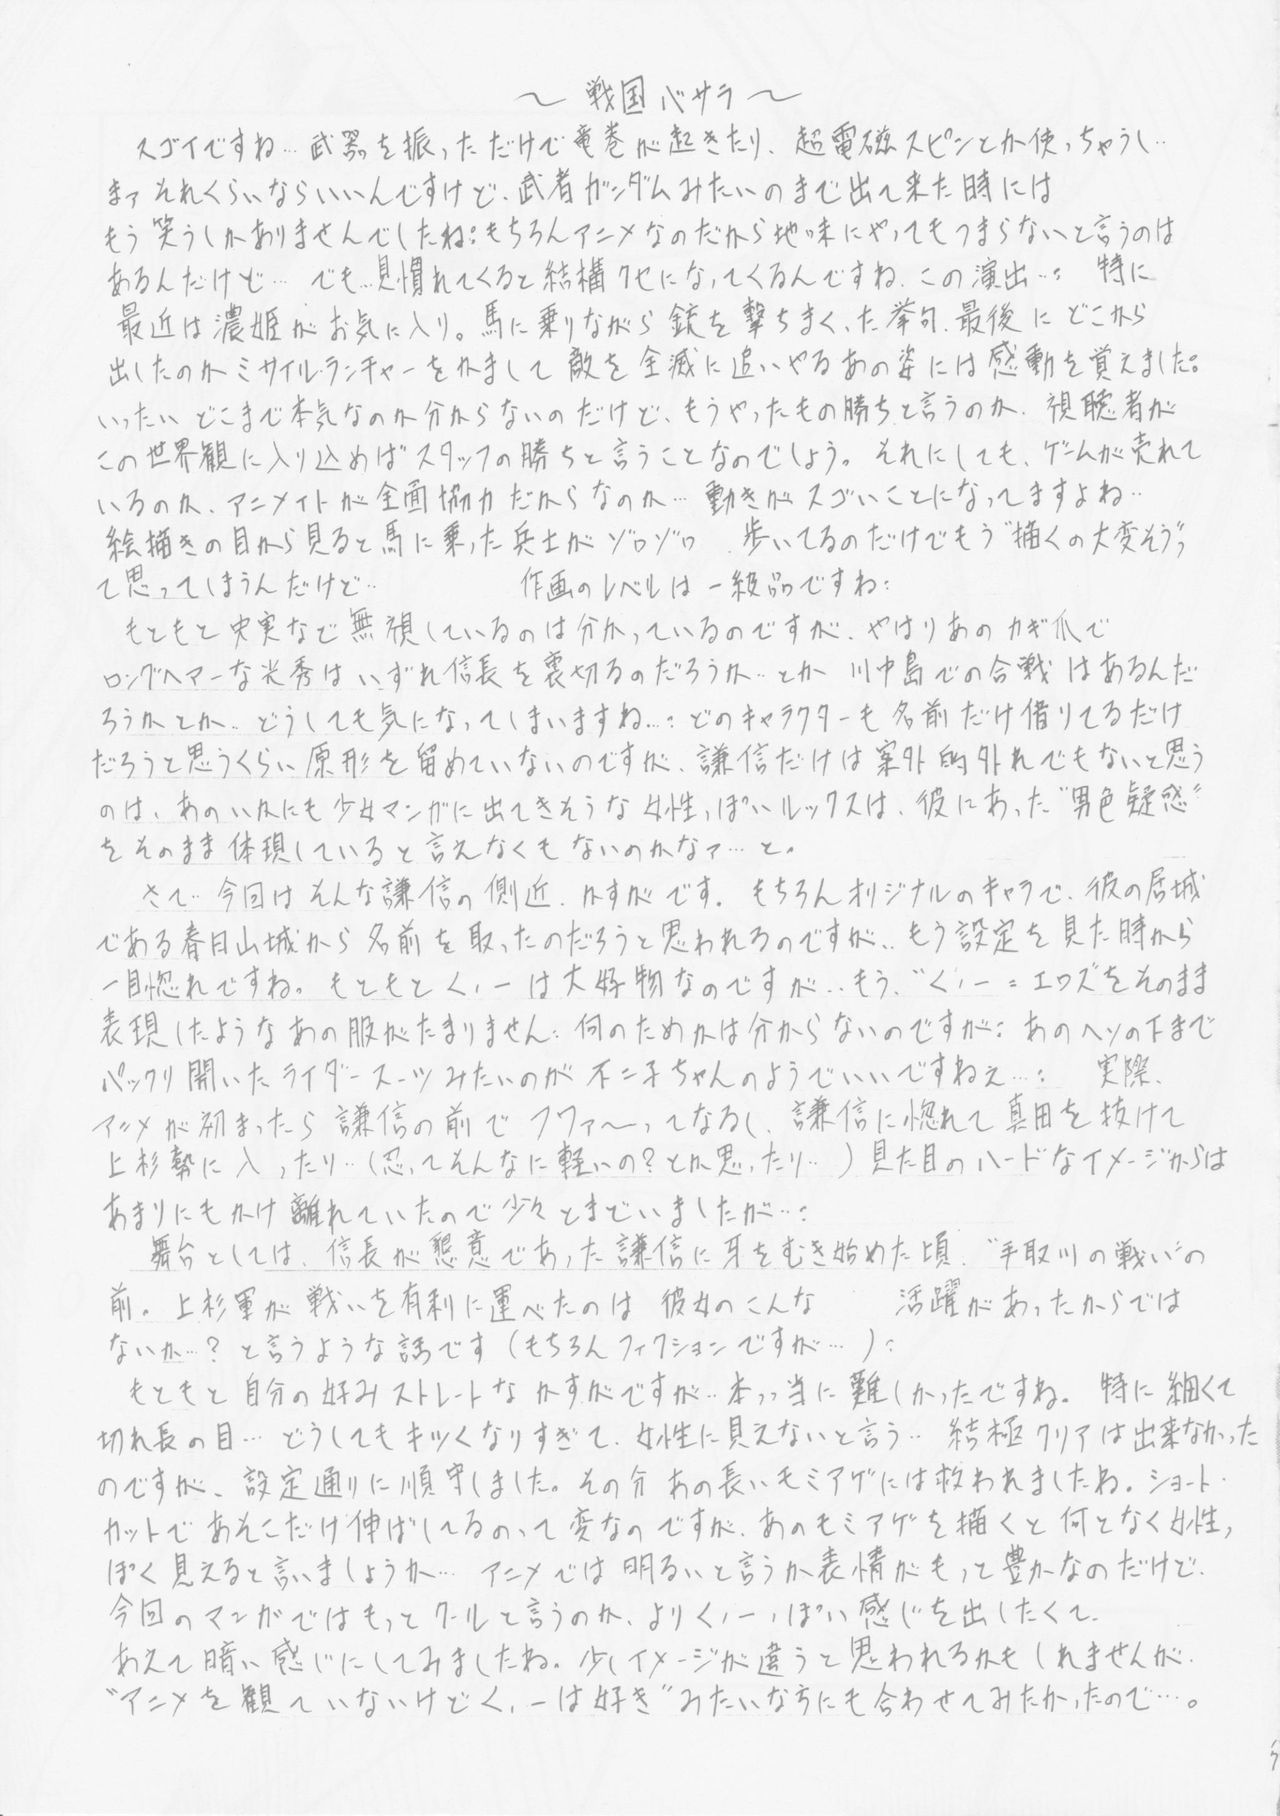 ～戦国バサラ～
スゴイですね…武器を振っただけで竜巻が起きたり、超電磁スピンとか使っちゃうし…
まァそれくらいならいいんですけど、武者ガンダムみたいのまで出て来た時には
もう笑うしかありませんでしたね: もちろんアニメなのだから地味にやってもつまらないと言うのは
あるんだけど… でも…見慣れてくると結構クセになってくるんですね、この演出…: 特に
最近は濃姫がお気に入り。馬に乗りながら銃を撃ちまくった挙句、最後にどこから
出したのかミサイル・ランチャーをかまして敵を全滅に追いやるあの姿には感動を覚えました。
いったいどこまで本気なのか分からないのだけど、もうやったもの勝ちと言うのか、視聴者が
この世界観に入り込めばスタッフの勝ちと言うことなのでしょう。それにしても、ゲームが売れて
いるのか、アニメイトが全面協力だからなのか…動きがスゴいことになってますよね…
絵描きの目から見ると馬に乗った兵士がゾロゾロ 歩いてるのだけでもう“描くの大変そう”
て思ってしまうんだけど… 作画のレベルは一級品ですね:
もともと史実など無視しているのは分かっているのですが、やはりあのカギ爪で
ロングヘアーな光秀はいずれ信長を裏切るのだろうか…とか川中島での合戦はあるんだ
ろうかとか…どうしても気になってしまいますね…: どのキャラクターも名前だけ借りてるだけ
だろうと思うくらい原形を留めていないのですが、謙信だけは案外的外れでもないと思う
のは、あのいかにも少女マンガに出てきそうな女性っぽいルックスは、彼にあった“男色疑惑”
をそのまま体現していると言えなくもないのかなァ…と。
さて…今回はそんな謙信の側近、かすがです。もちろんオリジナルのキャラで、彼の居城
である春日山城から名前を取ったのだろうと思われるのですが…もう設定を見た時から
一目惚れですね。もともとくノ一は大好物なのですが…もう、“くノ一=エロスをそのまま
表現したようなあの服がたまりません: 何のためかは分からないのですが: あのヘソの下まで
パックリ開いたライダースーツみたいのが不二子ちゃんのようでいいですねェ…: 実際、
アニメが初まったら謙信の前でフワァ～ってなるし、謙信に惚れて真田を抜けて
上杉勢に入ったり…(忍ってそんなに軽いの?とか思ったり…)見た目のハードなイメージからは
あまりにもかけ離れていたので少々とまどいましたが…:
舞台としては、信長が懇意であった謙信に牙をむき始めた頃、“手取川の戦い”の
前。上杉軍が戦いを有利に運べたのは彼女のこんな 活躍があったからでは
ないか…?と言うような話です(もちろんフィクションですが…):
もともと自分の好みストレートなかすがですが…本っ当に難しかったですね。特に細くて
切れ長の目…どうしてもキツくなりすぎて、女性に見えないと言う…結極クリアは出来なかった
のですが、設定通りに順守しました。その分あの長いモミアゲには救われましたね。ショート・
カットであそこだけ伸ばしてるのって変なのですが、あのモミアゲを描くと何となく女性っ
ぽく見えると言いましょうか… アニメでは明るいと言うか表情がもっと豊かなのだけど、
今回のマンガではもっとクールと言うのか、よりくノ一っぽい感じを出したくて、
あえて暗い感じにしてみましたね。少しイメージが違うと思われるかもしれませんが、
“アニメを観ていないけどくノ一は好き”みたいな方にも合わせてみたかったので…。